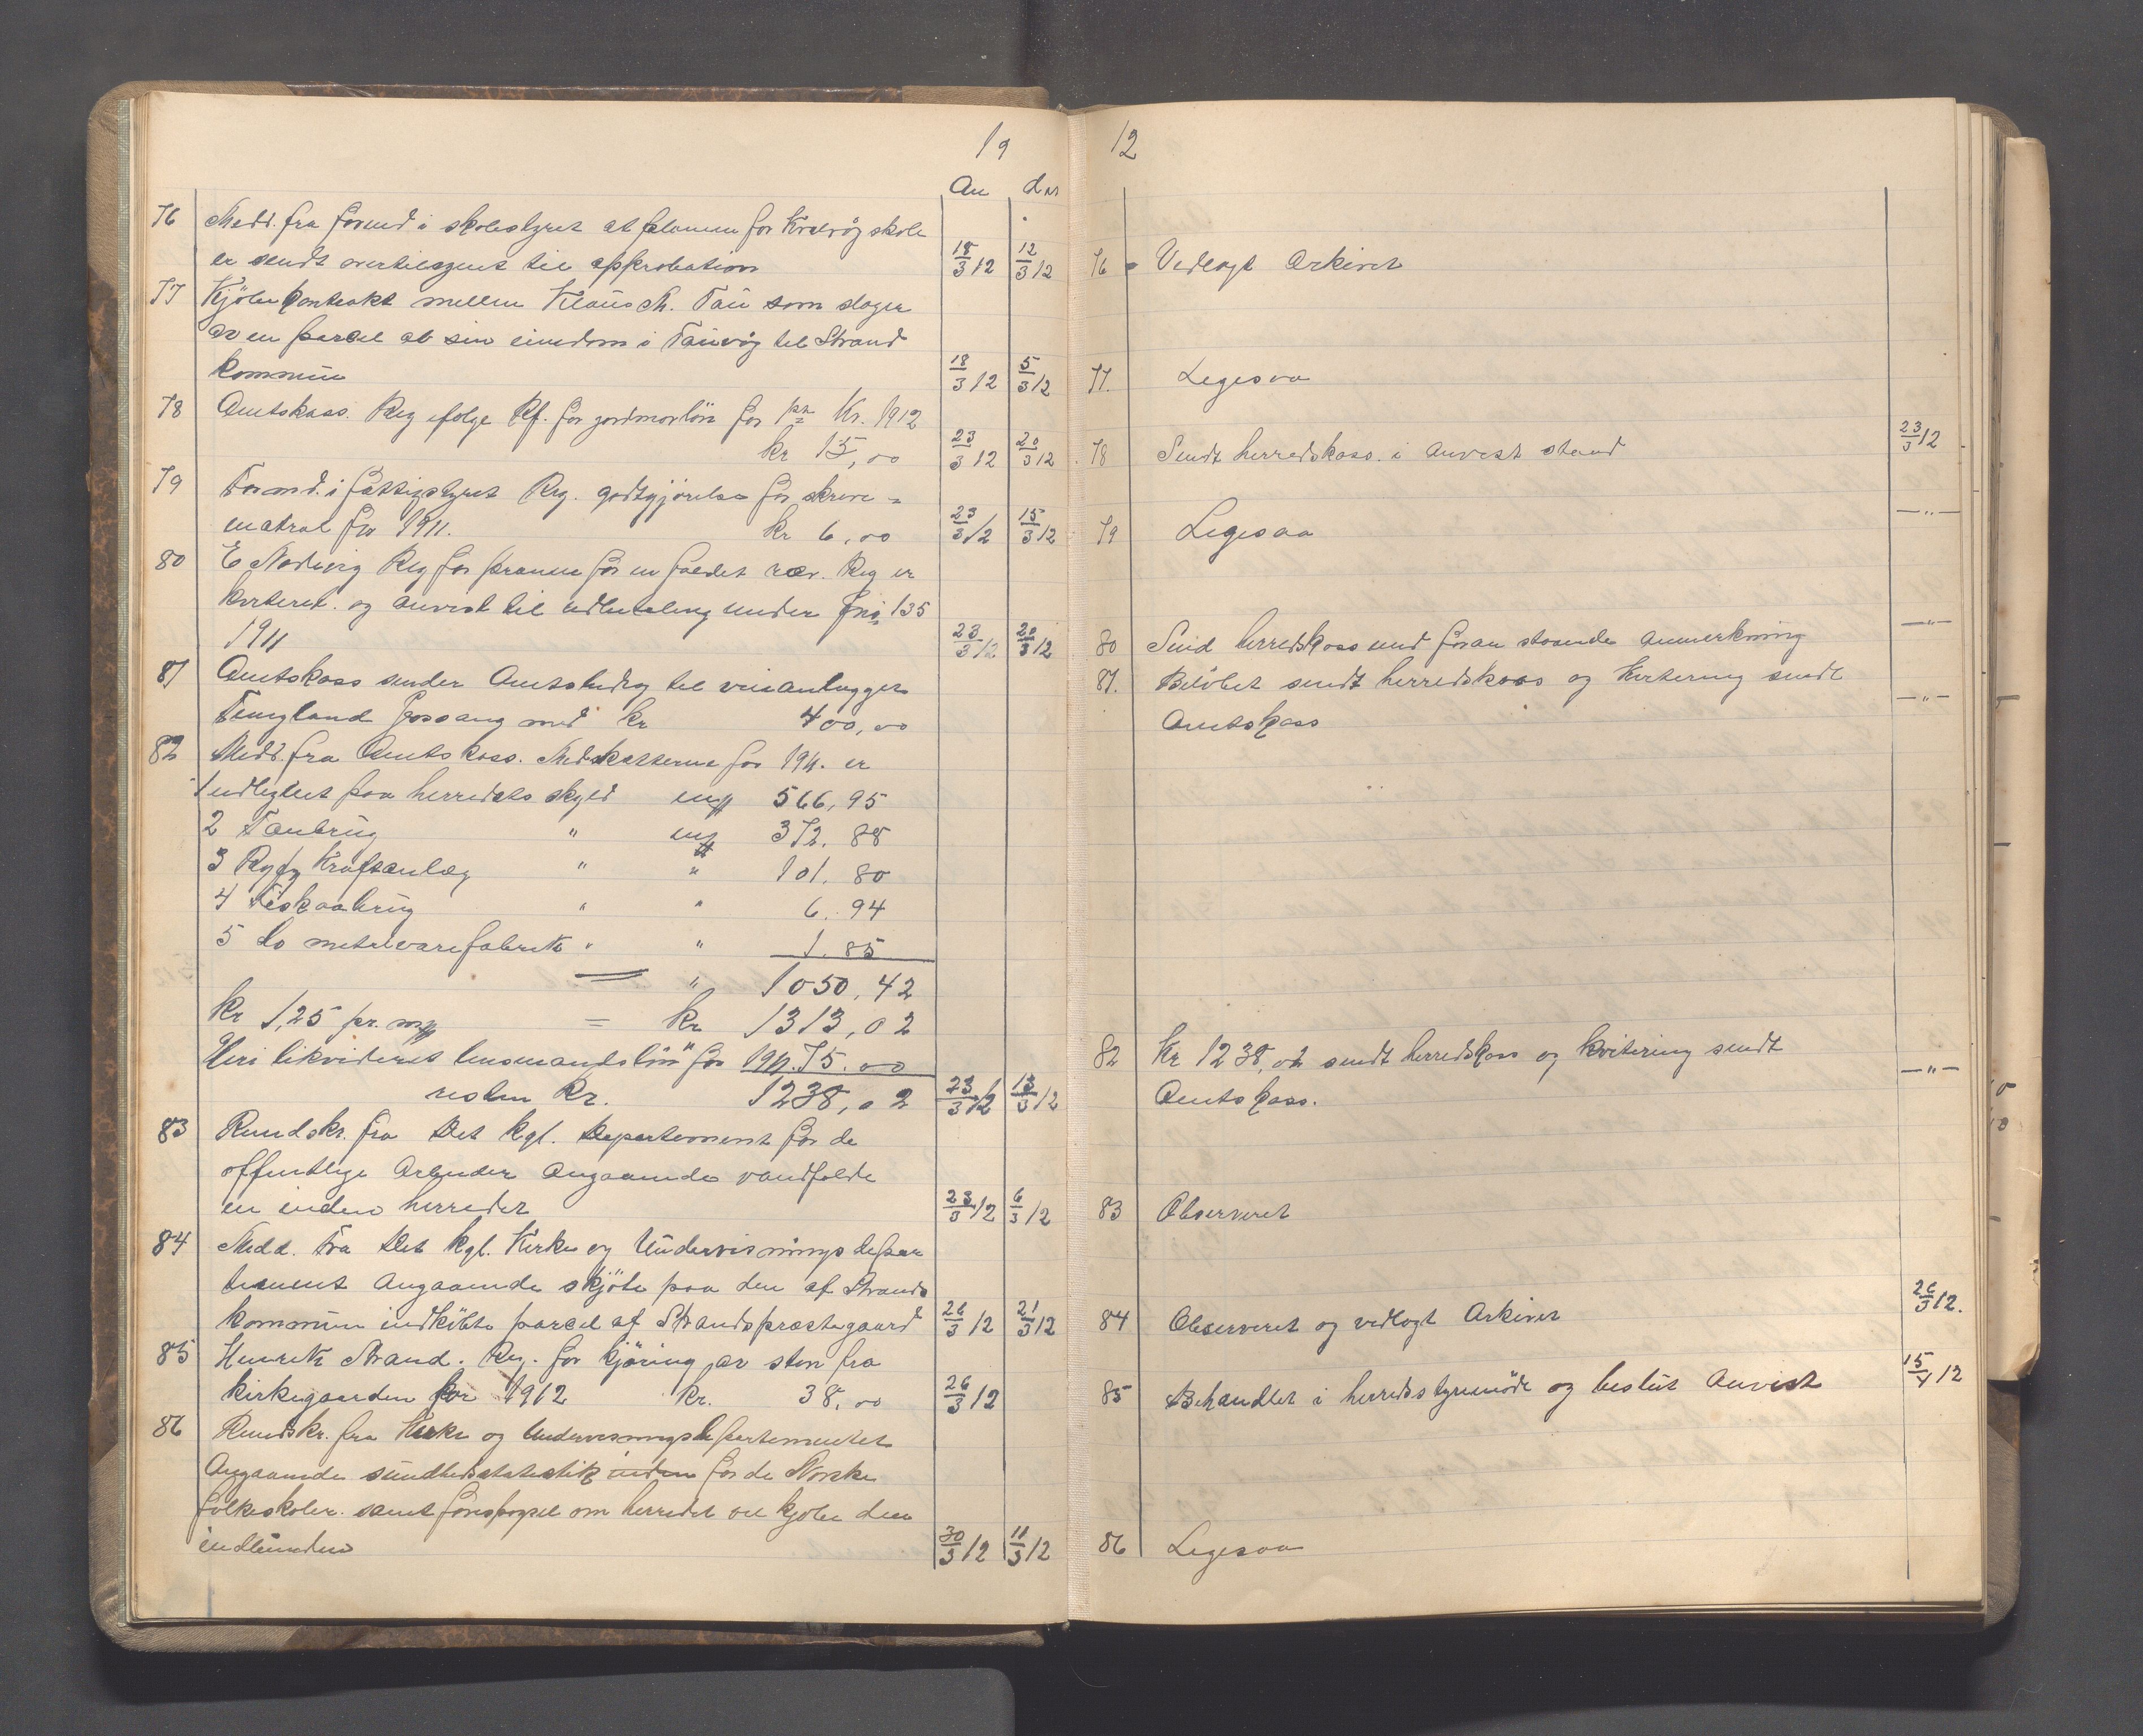 19 12
An dat
76 Medd. fra formd i skolestyret at planene for skole
er sendt overtilsynet til approbation 18/3 12 12/3 12
77 Kjöbekontrakt mellem Klaus M. Tau som
av en parcel af sin eiendom i Tauvåg til Strand
kommune 18/3 12 5/3 12
78 Amtskass. Reg ifölge Rf. for jordmorlön for 1ste Kv. 1912
kr 15,00 23/3 12 20/3 12
79 Formd. i fattigstyret Reg. godtgjörelse for skrive=
matrial for 1911. kr 6,00 23/3 12 15/3 12
80 E Nordvig Reg for præmie for en fældet ræv. Reg er
kviteret og anvist til udbetaling under jno 135
1911 23/3 12 20/3 12
81 Amtskass sender Amtsbidrag til veianlægget
Tungland Fossang med kr 400,00
82 Medd. fra Amtskass. Medskatterne for 1911. er
1 udlignet paa herredets skyld 566,95
2 Taubrug " 372.88
3 Ryfy Kraftanlæg " " 101.80
4 Fiskaabrug " " 6.94
5 do metalvarefabrik " " 1.85
" 1050,42
kr 1,25 pr. = kr 1313,02
Heri likvideres lensmandslön for 1911. 75.00
resten Kr. 1238,02 23/3 12 13/3 12
83 Rundskr. fra Det kgl. Departement for de
offentlige Arbeider Angaaende vandfalde
ne inden herredet 23/3 12 6/3 12
84 Medd. Fra Det kgl. Kirke og Undervisningsdepar
tement Angaaende skjöte paa den af Strands
kommune indkjöbte parcel af Strandspræstegaard 26/3 12 21/3 12
85 Henrik Strand. Reg. for kjöring av sten fra
kirkegaarden for 1912 kr. 38,00 26/3 12
86 Rundskr. fra Kirke og Undervisningsdepartementet
Angaaende sundhedsstatestik inden for de Norske
folkeskoler. samt forespörsel om herredet vil kjöbe den
indbunden 30/3 12 11/3 12
76 Vedlagt Arkivet
77. Legesaa
78 Sendt herredskass. i anvist stand 23/3 12
79 Legesaa —"—
80 Send herredskass med foran staaende anmerkning —"—
81. Belöbet sendt herredskass og kvitering sendt
Amtskass —"—
82 Kr 1238,02 sendt herredskass og kvitering sendt
Amtskass. —"—
83 Observeret
84 Observeret og vedlagt Arkivet 26/3 12.
85 Behandlet i herredsstyremöde og beslut Anvist 15/4 12
86 Legesaa